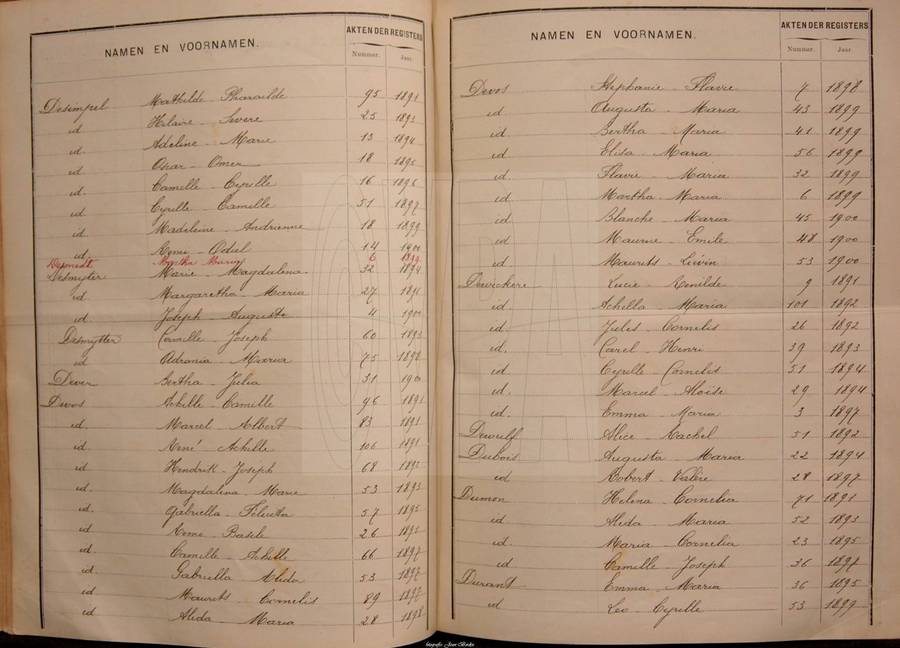 NAMEN EN VOORNAMEN. AKTEN DER REGISTERS
Nummer. Jaar.
Desimpel Mathilde Pharaïlde 95 1891
id Hilaire - Severe 25 1893
id Adeline - Marie 13 1894
id Oscar - Omer 18 1895
id Camille - Cyrille 16 1896
id Cyrille - Camille 51 1897
id Madeleine - Andrienne 18 1899
id Remi - Odiel 14 1900
Desmedt Martha Maria 6
Desmyter Marie - Magdalena 32 1894
id Margaretha - Maria 27 1896
id Joseph - Auguste 4 1900
Desmytter Camille - Joseph 60 1893
id Adronia - Maria 75 1898
Dever Bertha - Julia 51 1900
Devos Achille - Camille 96 1891
id Marcel - Albert 83 1891
id René - Achille 106 1891
id Hendrik - Joseph 68 1893
id Magdalina - Marie 53 1893
id Gabriella - Felicita 57 1895
id Remi - Basile 26 1895
id Camille - Achille 66 1897
id Gabriella Alida 53 1897
id Maurits - Cornelis 89 1897
id Alida - Maria 28 1898
NAMEN EN VOORNAMEN. AKTEN DER REGISTERS
Nummer. Jaar.
Devos Stephanie - Flavie 7 1898
id Augusta - Maria 43 1899
id Bertha - Maria 41 1899
id Elisa - Maria 56 1899
id Flavie - Maria 32 1899
id Martha - Maria 6 1899
id Blanche - Maria 45 1900
id Maurice - Emile 48 1900
id Maurits - Livin 53 1900
Dewickere Lucie - Emilde 9 1891
id Achilla - Maria 101 1892
id Jules - Cornelis 26 1892
id. Carel - Henri 39 1893
id. Cyrille - Cornelis 51 1894
id. Marcel - Aloïse 29 1894
id. Emma - Maria 3 1897
Dewulf Alice - Rachel 51 1892
Dubois Augusta - Maria 22 1894
id Robert - Valère 28 1897
Dumon Helena - Cornelia 71 1891
id Alida - Maria 52 1893
id Maria - Cornelia 23 1895
id Camille - Joseph 36 1897
Durant Emma - Maria 36 1895
id Leo - Cyrille 53 1899